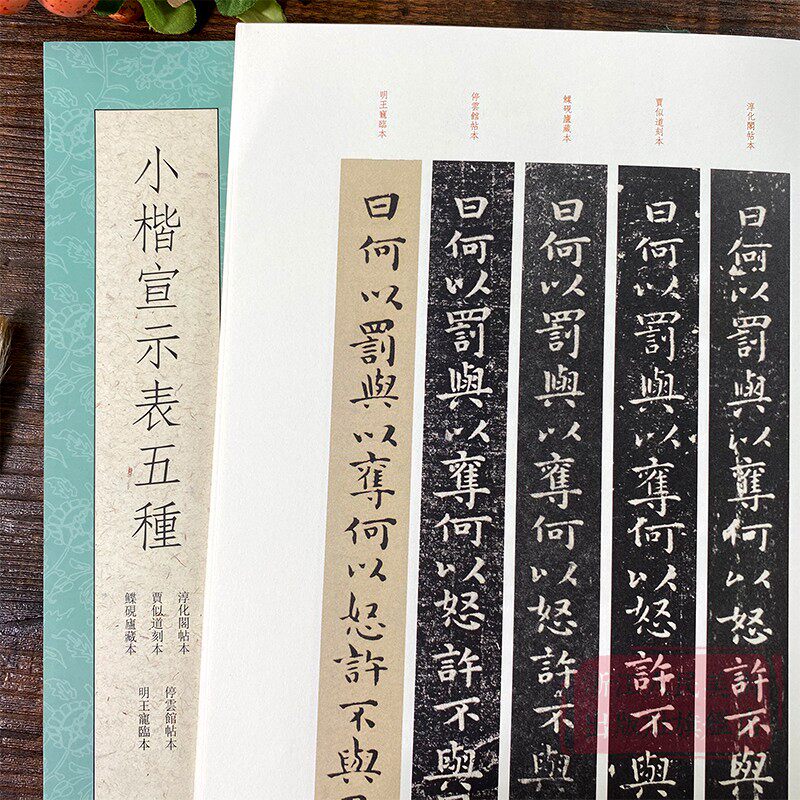 小楷宣示表五種
淳化閣帖本
賈似道刻本
鰈硯廬藏本
停雲館帖本
明王寵臨本
淳化閣帖本
賈似道刻本
鰈硯廬藏本
停雲館帖本
明王寵臨本
曰何以罰與以奪何以怒許不與
曰何以罰與以奪何以怒許不與
曰何以罰與以奪何以怒許不與
曰何以罰與以奪何以怒許不與
曰何以罰與以奪何以怒許不與